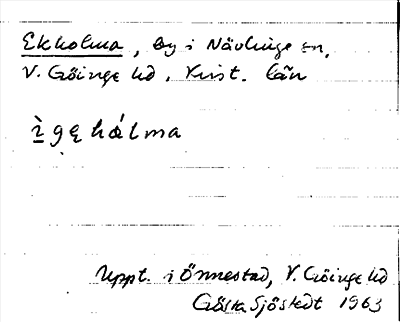 Ekholma, by i Nävlinge sn,
V. Göinge hd, Krist. län
ì g ę hålma
Uppt. i Önnestad, V. Göinge hd
Gösta Sjöstedt 1963